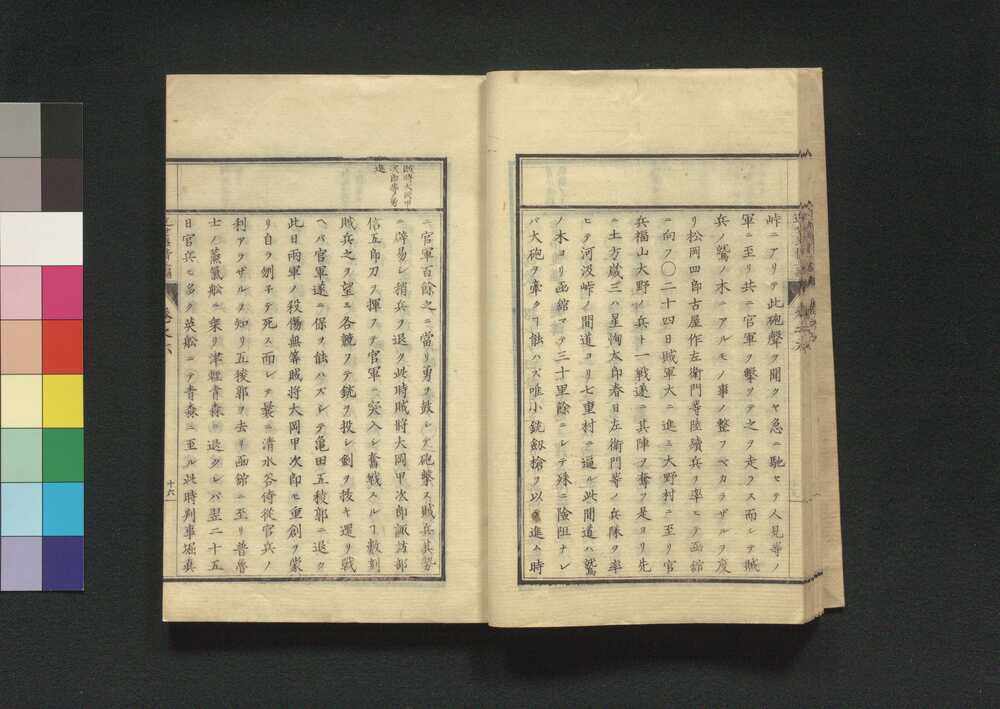 峠ニアリテ此砲聲ヲ聞クヤ急ニ馳セテ人見等ノ
軍ニ至リ共ニ官軍ヲ擊ツテ之ヲ走ラス而シテ賊
兵ノ鷲ノ木ニアルモノ事ノ整フベカラザルヲ度
リ松岡四郎古屋作左衛門等陸續兵ヲ率ヒテ函館
ニ向フ〇二十四日賊軍大ニ進ミ大野村ニ至リ官
兵福山大野ノ兵ト一戰遂ニ其陣ヲ奪フ是ヨリ先
ニ土方歳三ハ星恂太郎春日左衛門等ノ兵隊ヲ率
ヒテ河汲峠ノ間道ヨリ七重村ニ逼ル此間道ハ鷲
ノ木ヨリ函館マデ三十里餘ニシテ殊ニ險阻ナレ
バ大砲ヲ牽クヿ能ハズ唯小銃劔槍ヲ以テ進ム時
賊將大岡甲
次郎等ノ奮
進
ニ官軍百餘之ニ當リ勇ヲ鼓シテ砲擊ス賊兵其勢
ニ辟易シ稍兵ヲ退ク此時賊將大岡甲次郎諏訪部
信五郎刀ヲ揮フテ官軍ニ突入シ奮戰スルヿ數刻
賊兵之ヲ望ミ各競フテ銃ヲ投シ劍ヲ抜キ還リ戰
ヘバ官軍遂ニ保ツ能ハズシテ亀田五稜郭ニ退ク
此日兩軍ノ殺傷無筭賊將大岡甲次郎モ重創ヲ蒙
リ自ラ刎子テ死ス而シテ曩ニ清水谷侍從官兵ノ
利アラザルヲ知リ五稜郭ヲ去リ函館ニ至リ普魯
士ノ蒸氣船ニ乘リ津軽青森ニ退クレバ翌二十五
日官兵モ多ク英船ニテ青森ニ至ル此時判事堀真
十六